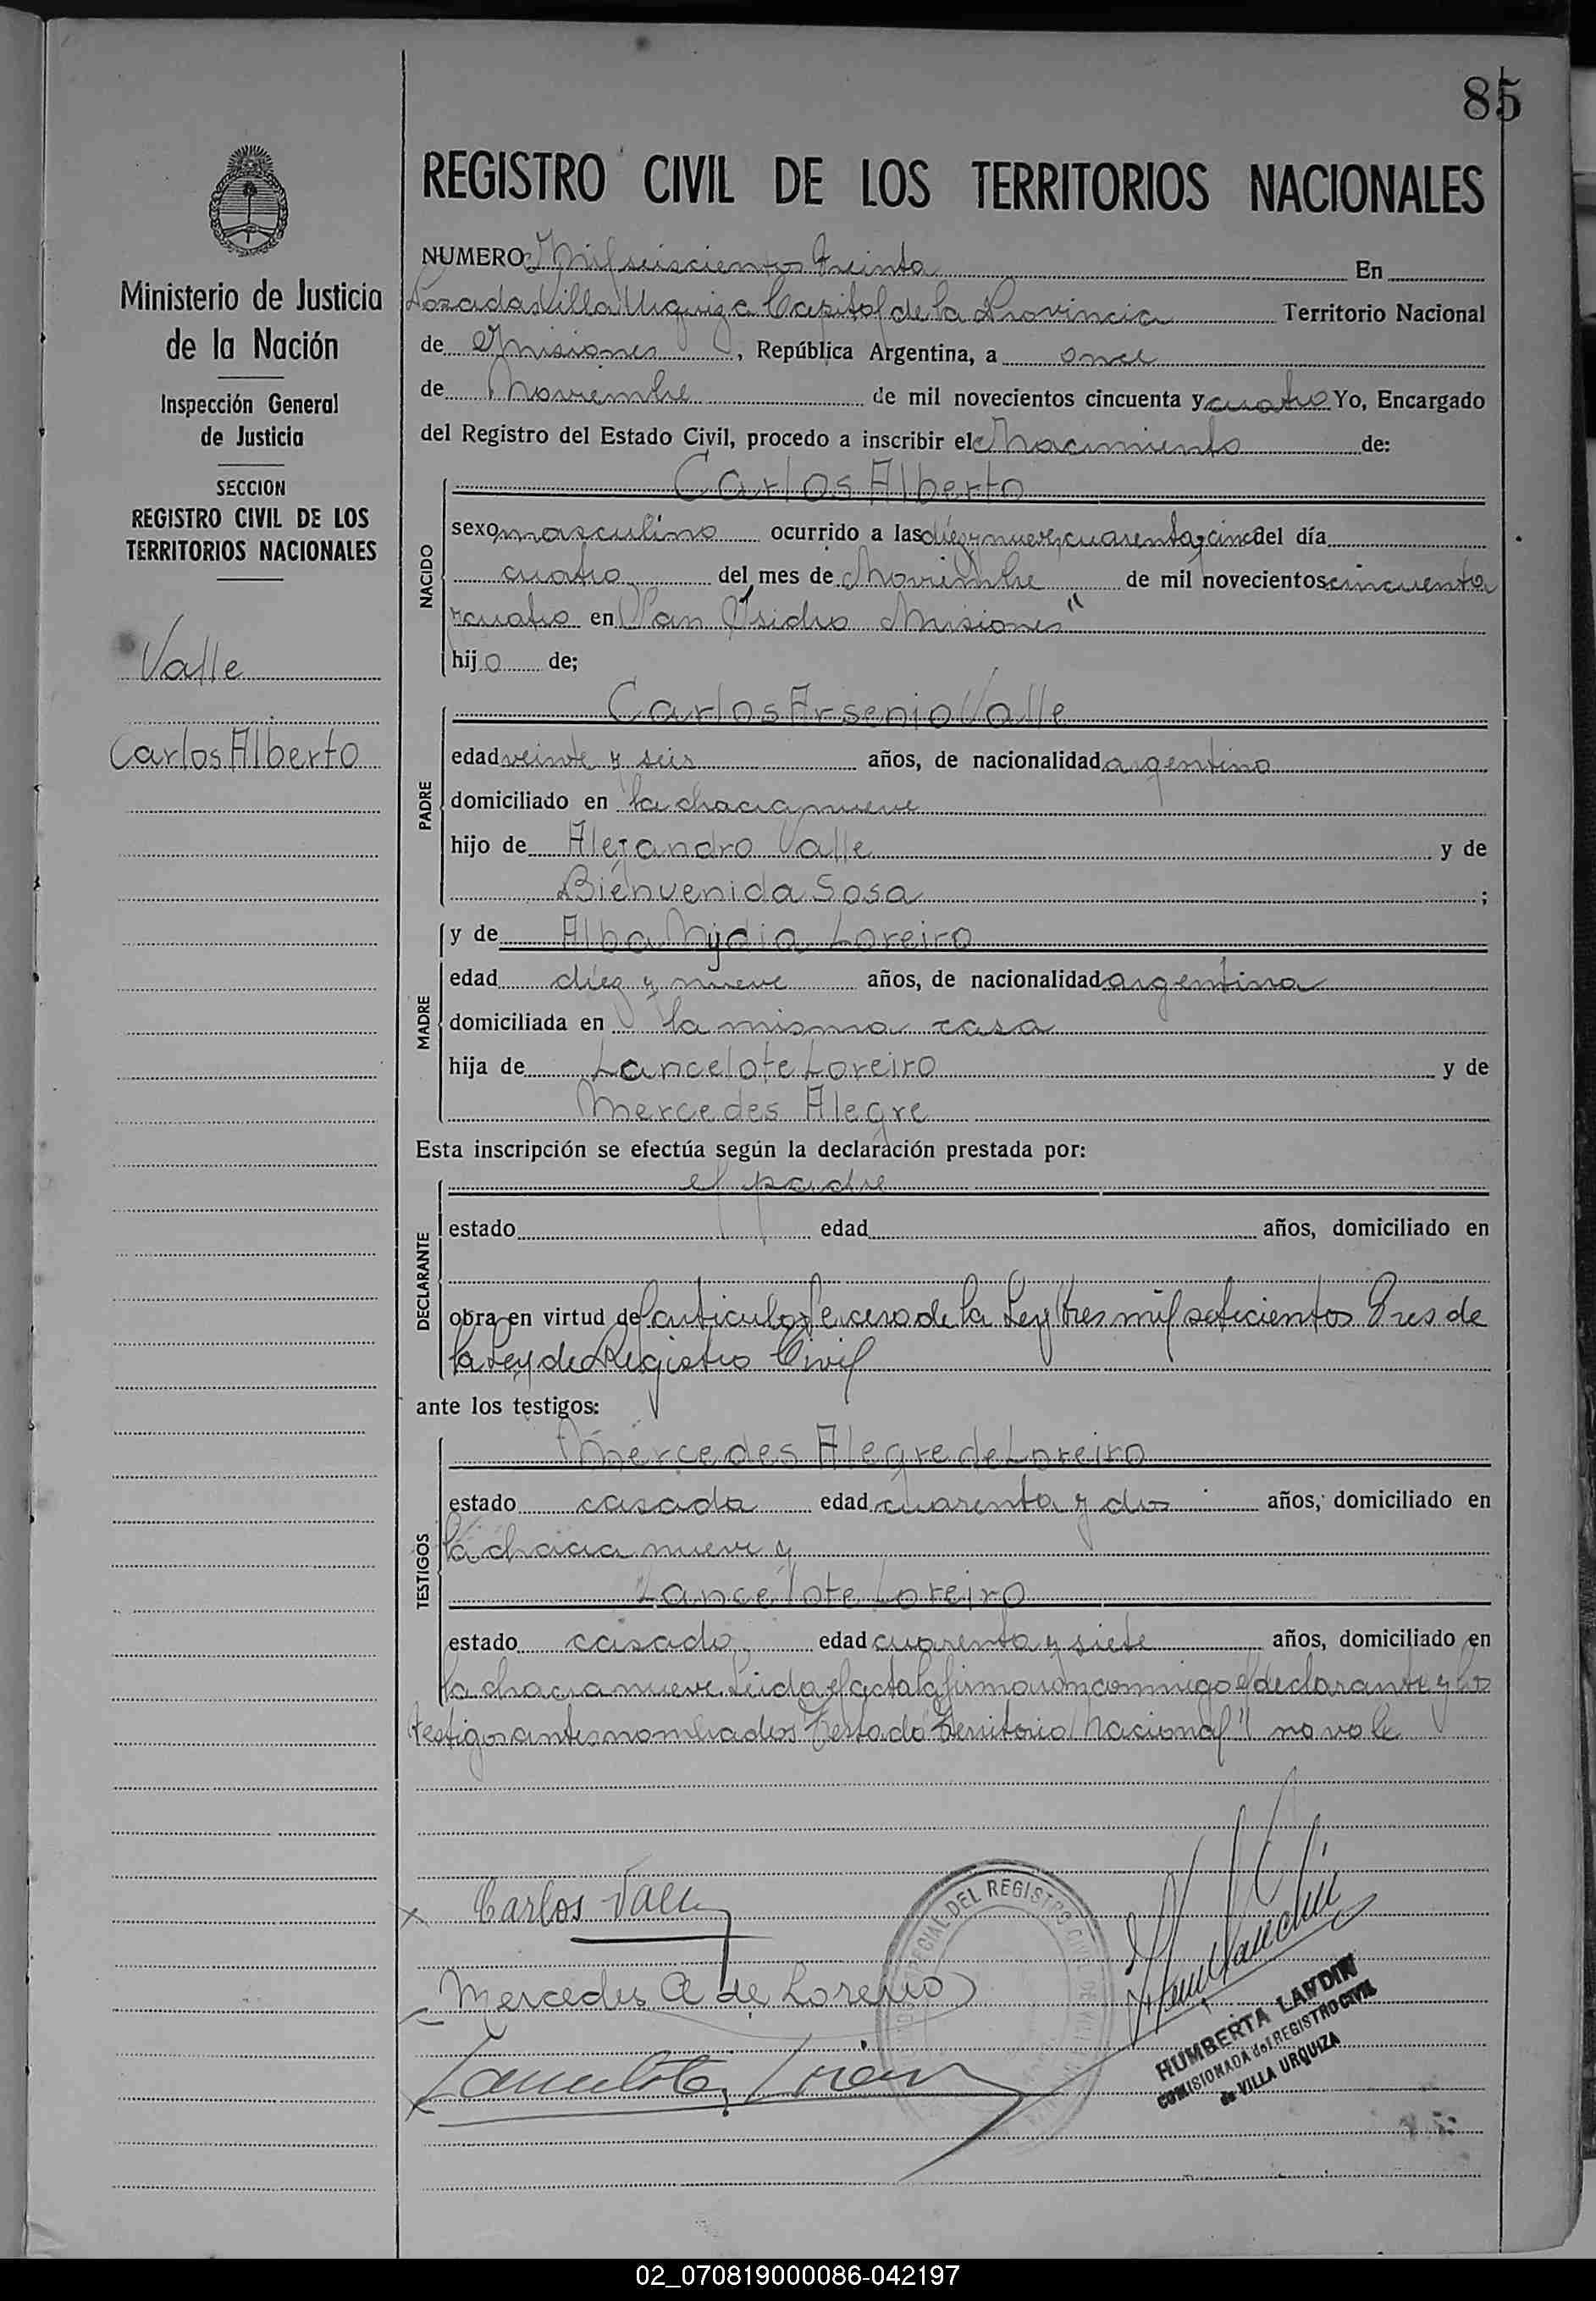 85
REGISTRO CIVIL DE LOS TERRITORIOS NACIONALES
Ministerio de Justicia
de la Nación
Inspección General
de Justicia
SECCION
REGISTRO CIVIL DE LOS
TERRITORIOS NACIONALES
Valle
Carlos Alberto
NUMERO Mil seiscientos treinta En
Posadas Villa Urquiza Capital de la Provincia Territorio Nacional
de Misiones, República Argentina, a once
de Noviembre de mil novecientos cincuenta y cuatro Yo, Encargado
del Registro del Estado Civil, procedo a inscribir el Nacimiento de:
NACIDO
Carlos Alberto
sexo masculino ocurrido a las diez y nueve, cuarenta y cinco del día
cuatro del mes de Noviembre de mil novecientos cincuenta
y cuatro en "San Isidro Misiones"
hijo de;
PADRE
Carlos Arsenio Valle
edad veinte y seis años, de nacionalidad argentino
domiciliado en la chacra nueve
hijo de Alejandro Valle y de
Bienvenida Sosa ;
MADRE
y de Alba Nydia Loreiro
edad diez y nueve años, de nacionalidad argentina
domiciliada en la misma casa
hija de Lancelote Loreiro y de
Mercedes Alegre
Esta inscripción se efectúa según la declaración prestada por:
DECLARANTE
el padre
estado edad años, domiciliado en
obra en virtud del articulo tercero de la Ley tres mil setecientos tres de
la Ley de Registro Civil
ante los testigos:
TESTIGOS
Mercedes Alegre de Loreiro
estado casada edad cuarenta y dos años, domiciliado en
la chacra nueve y
Lancelote Loreiro
estado casado edad cuarenta y siete años, domiciliado en
la chacra nueve. Leida el acta la firmaron conmigo el declarante y los
testigos antes nombrados Testado "Territorio Nacional" no vale
Carlos Valle
Mercedes A de Loreiro
Lancelote Loreiro
DEL REGISTRO CIVIL DE
HUMBERTA LANDIN
COMISIONADA del REGISTRO CIVIL
de VILLA URQUIZA
02_070819000086-042197